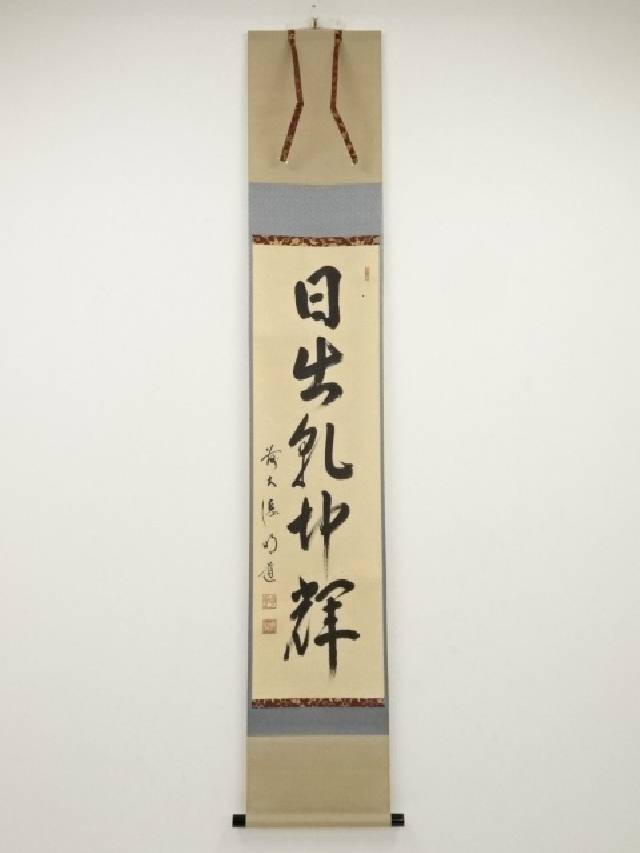 日出乾坤輝
前大徳明道